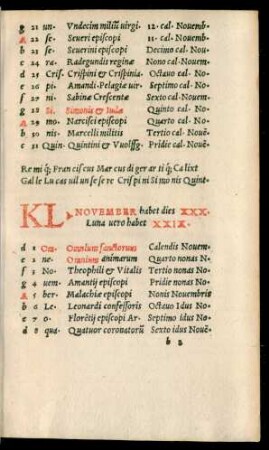 g 21 un. Vndecim miliū uirgi. 12. cal. Nouemb.
A 22 se. Seueri episcopi 11. cal. Nouemb.
b 23 se. Seuerini episcopi Decimo cal. Nou.
c 24 ra. Radegundis reginæ Nono cal. Nouem.
d 25 Cris. Crispini & Crispinia. Octauo cal. No.
e 26 pi. Amandi. Pelagiæ uir. Septimo cal. No.
f 27 ni. Sabinæ Crescentæ Sexto cal. Nouem.
g 28 Si. Simonis & Iudæ Quinto cal. No.
A 29 mo. Narcisci episcopi Quarto cal. No.
b 30 nis. Marcelli militis Tertio cal. Nouē.
c 31 Quin. Quintini & Vuolffg. Pridie cal. No.
Re mi q̃; Fran cis cus Mar cus di ger ar ti q̃; Ca lixt
Gal le Lu cas uil un se se re Cris pi ni Si mo nis Quint.
KL NOVEMBER habet dies XXX.
Luna uero habet XXIX.
d 1 Om. Omnium sanctorum Calendis Nouem.
e 2 ne. Omnium animarum Quarto nonas N.
f 3 No. Theophili & Vitalis Tertio nonas No.
g 4 uem. Amantij episcopi Pridie nonas No.
A 5 ber. Malachiæ episcopi Nonis Nouembris
b 6 Le. Leonardi confessoris Octauo Idus No.
c 7 o. Florētij episcopi Ar. Septimo idus No.
d 8 qua. Quatuor coronatorū Sexto idus Nouē.
b 2